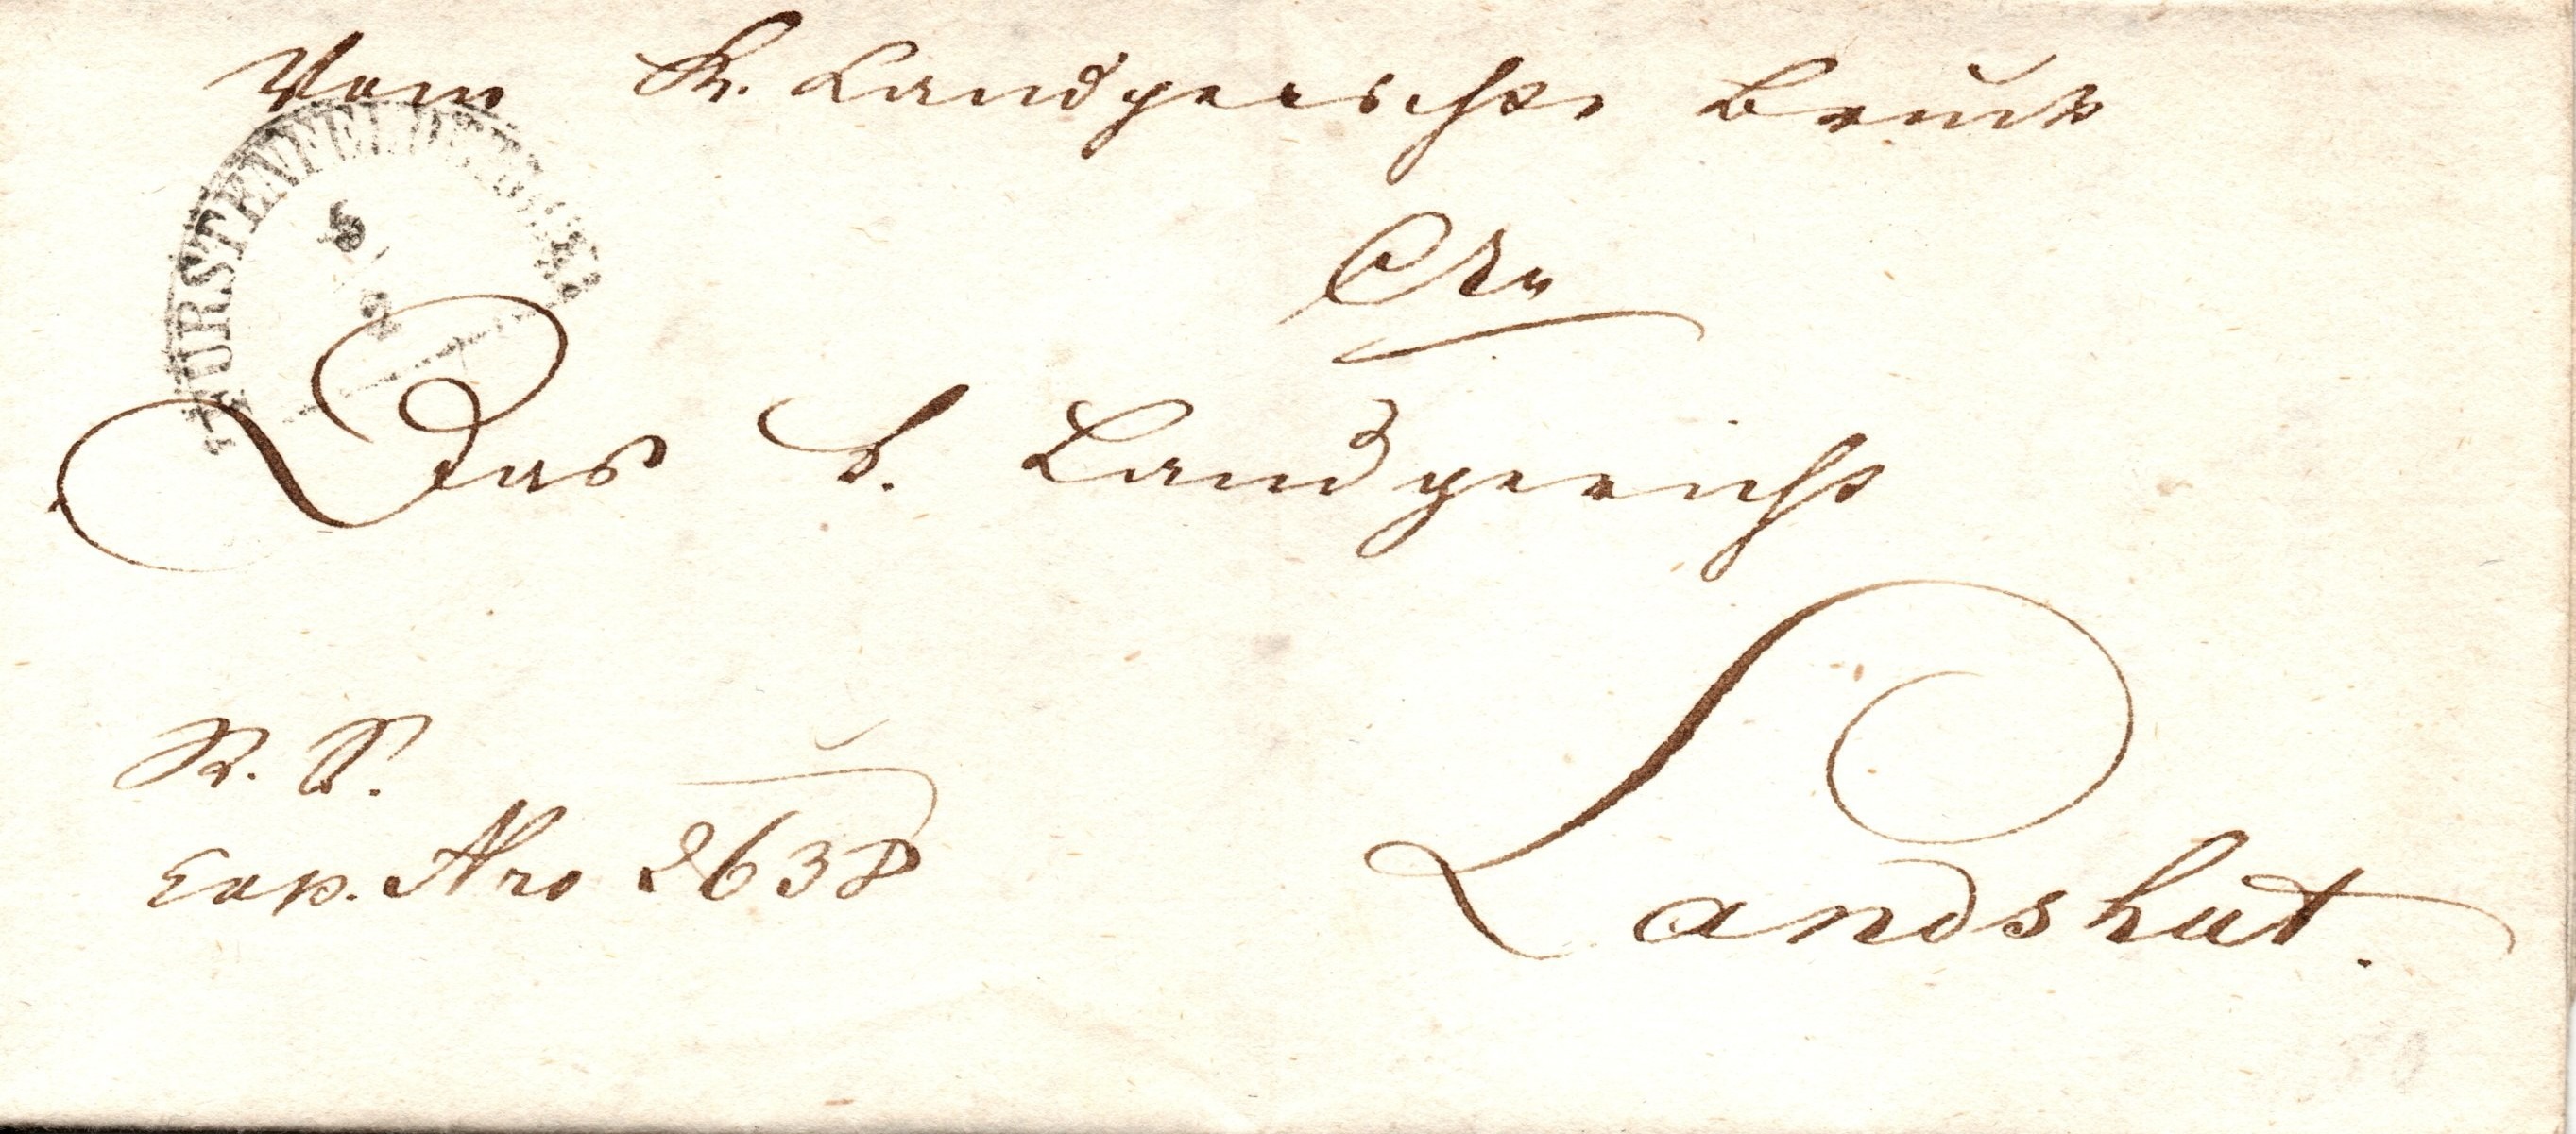 Vom K. Landgerichte Bruck
FÜRSTENFELDBRUCK
5
2
An
Das k. Landgericht
R. S.
Exp. Nro 2638
Landshut.